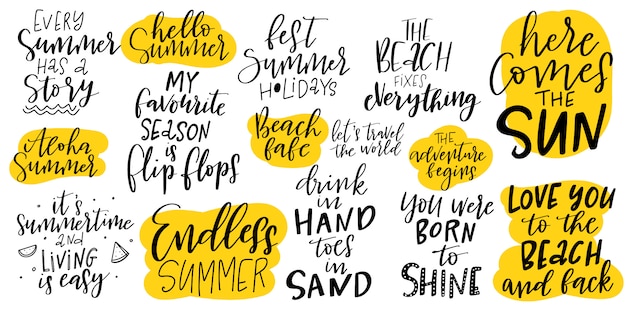 EVERY
Summer
HAS A
Story
hello
Summer
best
Summer
HOLIDAYS
THE
BEACH
FIXES
everything
here
Comes
THE
SUN
MY
favourite
SEASON
is
flip flops
Aloha
Summer
Beach
babe
let's travel
the world
THE
adventure
begins
it's
summertime
and
LIVING
is easy
Endless
SUMMER
drink
in
HAND
toes
in
SAND
YOU WERE
BORN
to
SHINE
LOVE YOU
to the
BEACH
and back